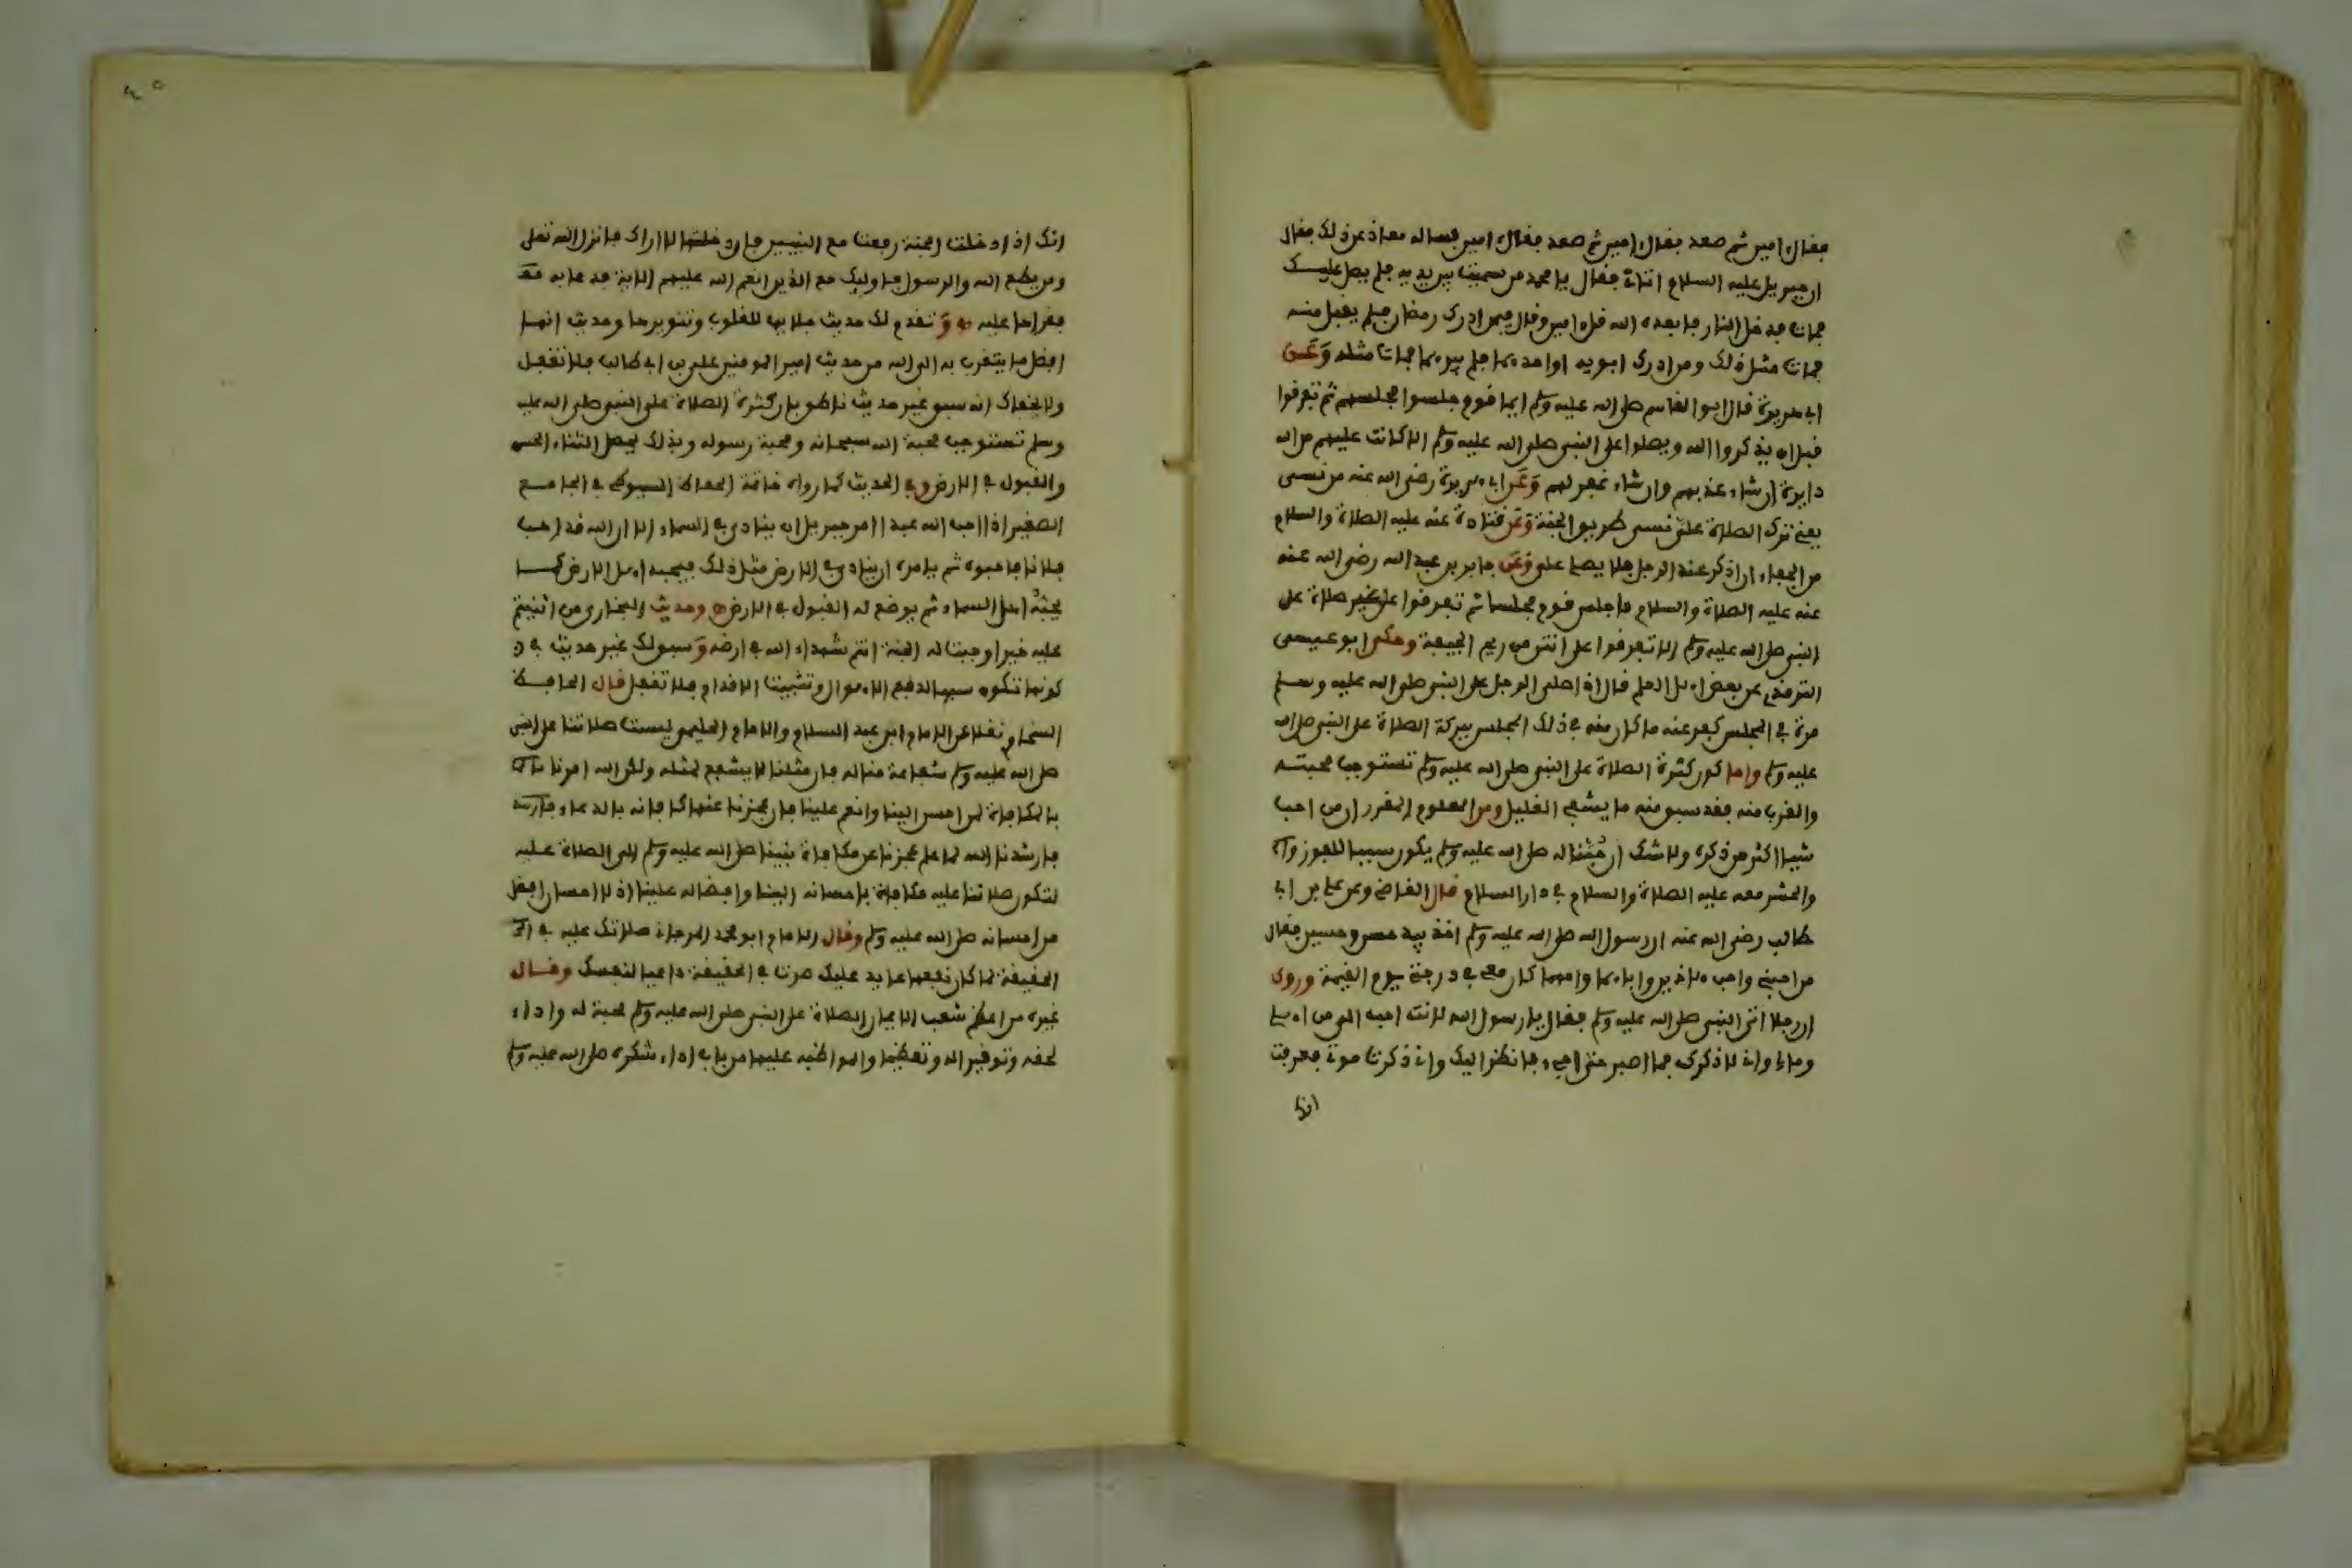 فقال امين ثم صعد فقال امين ثم صعد فقال امين فساله معاذ عن ذلك فقال
ان جبريل عليه السلام اتاني فقال يا محمد من سميت بين يديه فلم يصل عليك
فمات فدخل النار فابعده الله قل امين وقال فيمن ادرك رمضان فلم يقبل منه
فمات مثل ذلك ومن ادرك ابويه او احدهما فلم يبرهما فمات مثله وعن
ابي هريرة قال ابو القاسم صلى الله عليه وسلم ايما قوم جلسوا مجلسهم ثم تفرقوا
قبل ان يذكروا الله ويصلوا على النبي صلى الله عليه وسلم الا كانت عليهم من الله
دايرة ان شاء عذبهم وان شاء غفر لهم وعن ابي هريرة رضي الله عنه من نسي
يعني ترك الصلاة علي نسي طريق الجنة وعن قتادة عنه عليه الصلاة والسلام
من الجفاء ان اذكر عند الرجل فلا يصلي علي وعن جابر بن عبد الله رضي الله عنه
عنه عليه الصلاة والسلام ما جلس قوم مجلسا ثم تفرقوا على غير صلاة على
النبي صلى الله عليه وسلم الا تفرقوا على انتن من ريح الجيفة وحكى ابو عيسى
الترمذي عن بعض اهل العلم قال اذا صلى الرجل على النبي صلى الله عليه وسلم
مرة في المجلس كفر عنه ما كان منه في ذلك المجلس ببركة الصلاة على النبي صلى الله
عليه وسلم واما كون كثرة الصلاة على النبي صلى الله عليه وسلم تستوجب محبته
والقرب منه فقد سبق منه ما يشفي الغليل ومن المعلوم المقرر ان من احب
شيا اكثر من ذكره ولا شك ان محبتنا له صلى الله عليه وسلم يكون سببا للفوز
والحشر معه عليه الصلاة والسلام في دار السلام قال القاضي وعن علي بن ابي
طالب رضي الله عنه ان رسول الله صلى الله عليه وسلم اخذ بيد حسن وحسين فقال
من احبني واحب هاذين واباهما وامهما كان معي في درجتي يوم القيمة وروي
ان رجلا اتى النبي صلى الله عليه وسلم فقال يا رسول الله لانت احب الي من اهلي
ومالي واني لاذكرك فما اصبر حتى اجيء فانظر اليك واني ذكرت موتي فعرفت
انك
انك اذا دخلت الجنة رفعت مع النبيين فان دخلتها لا اراك فانزل الله تعلى
ومن يطع الله والرسول فاوليك مع الذين انعم الله عليهم الاية فدعا به
فقراها عليه وتقدم لك حديث جلايها للقلوب وتنويرها وحديث انها
افضل ما يتقرب به الى الله من حديث امير المومنين علي بن ابي طالب فلا تغفل
ولا يخفاك انه سبق غير حديث ناطق بان كثرة الصلاة على النبي صلى الله عليه
وسلم تستوجب محبة الله سبحانه ومحبة رسوله وبذلك يحصل الثناء الحسن
والقبول في الارض وفي الحديث كما رواه خاتمة الحفاظ السيوطي في الجامع
الصغير اذا احب الله عبدا امر جبريل ان ينادي في السماء الا ان الله قد احب
فلانا فاحبوه ثم يامره ان ينادي في الارض مثل ذلك فيحبه اهل الارض كما
يحبه اهل السماء ثم يوضع له القبول في الارض وحديث البخاري من اثنيتم
عليه خيرا وجبت له الجنة انتم شهداء الله في ارضه وسبق لك غير حديث في
كونها تكون سببا لدفع الاهوال وتثبيت الاقدام فلا تغفل قال الحافظ
السخاوي نقلا عن الامام ابن عبد السلام والامام الحليمي ليست صلاتنا على النبي
صلى الله عليه وسلم شفاعة منا له فان مثلنا لا يشفع لمثله ولكن الله امرنا
بالمكافاة لمن احسن الينا وانعم علينا فان عجزنا عنها كافانه بالدعاء
فارشدنا الله لما علم عجزنا عن مكافاة نبينا صلى الله عليه وسلم الى الصلاة عليه
لتكون صلاتنا عليه مكافاة باحسانه الينا وافضاله علينا اذ لا احسان افضل
من احسانه صلى الله عليه وسلم وقال الامام ابو محمد المرجاني صلاتك عليه في
الحقيقة لما كان نفعها عايد عليك صرت في الحقيقة داعيا لنفسك وقال
غيره من اعظم شعب الايمان الصلاة على النبي صلى الله عليه وسلم محبة له واداء
لحقه وتوقيرا له وتعظيما والمواظبة عليها من باب اداء شكره صلى الله عليه وسلم